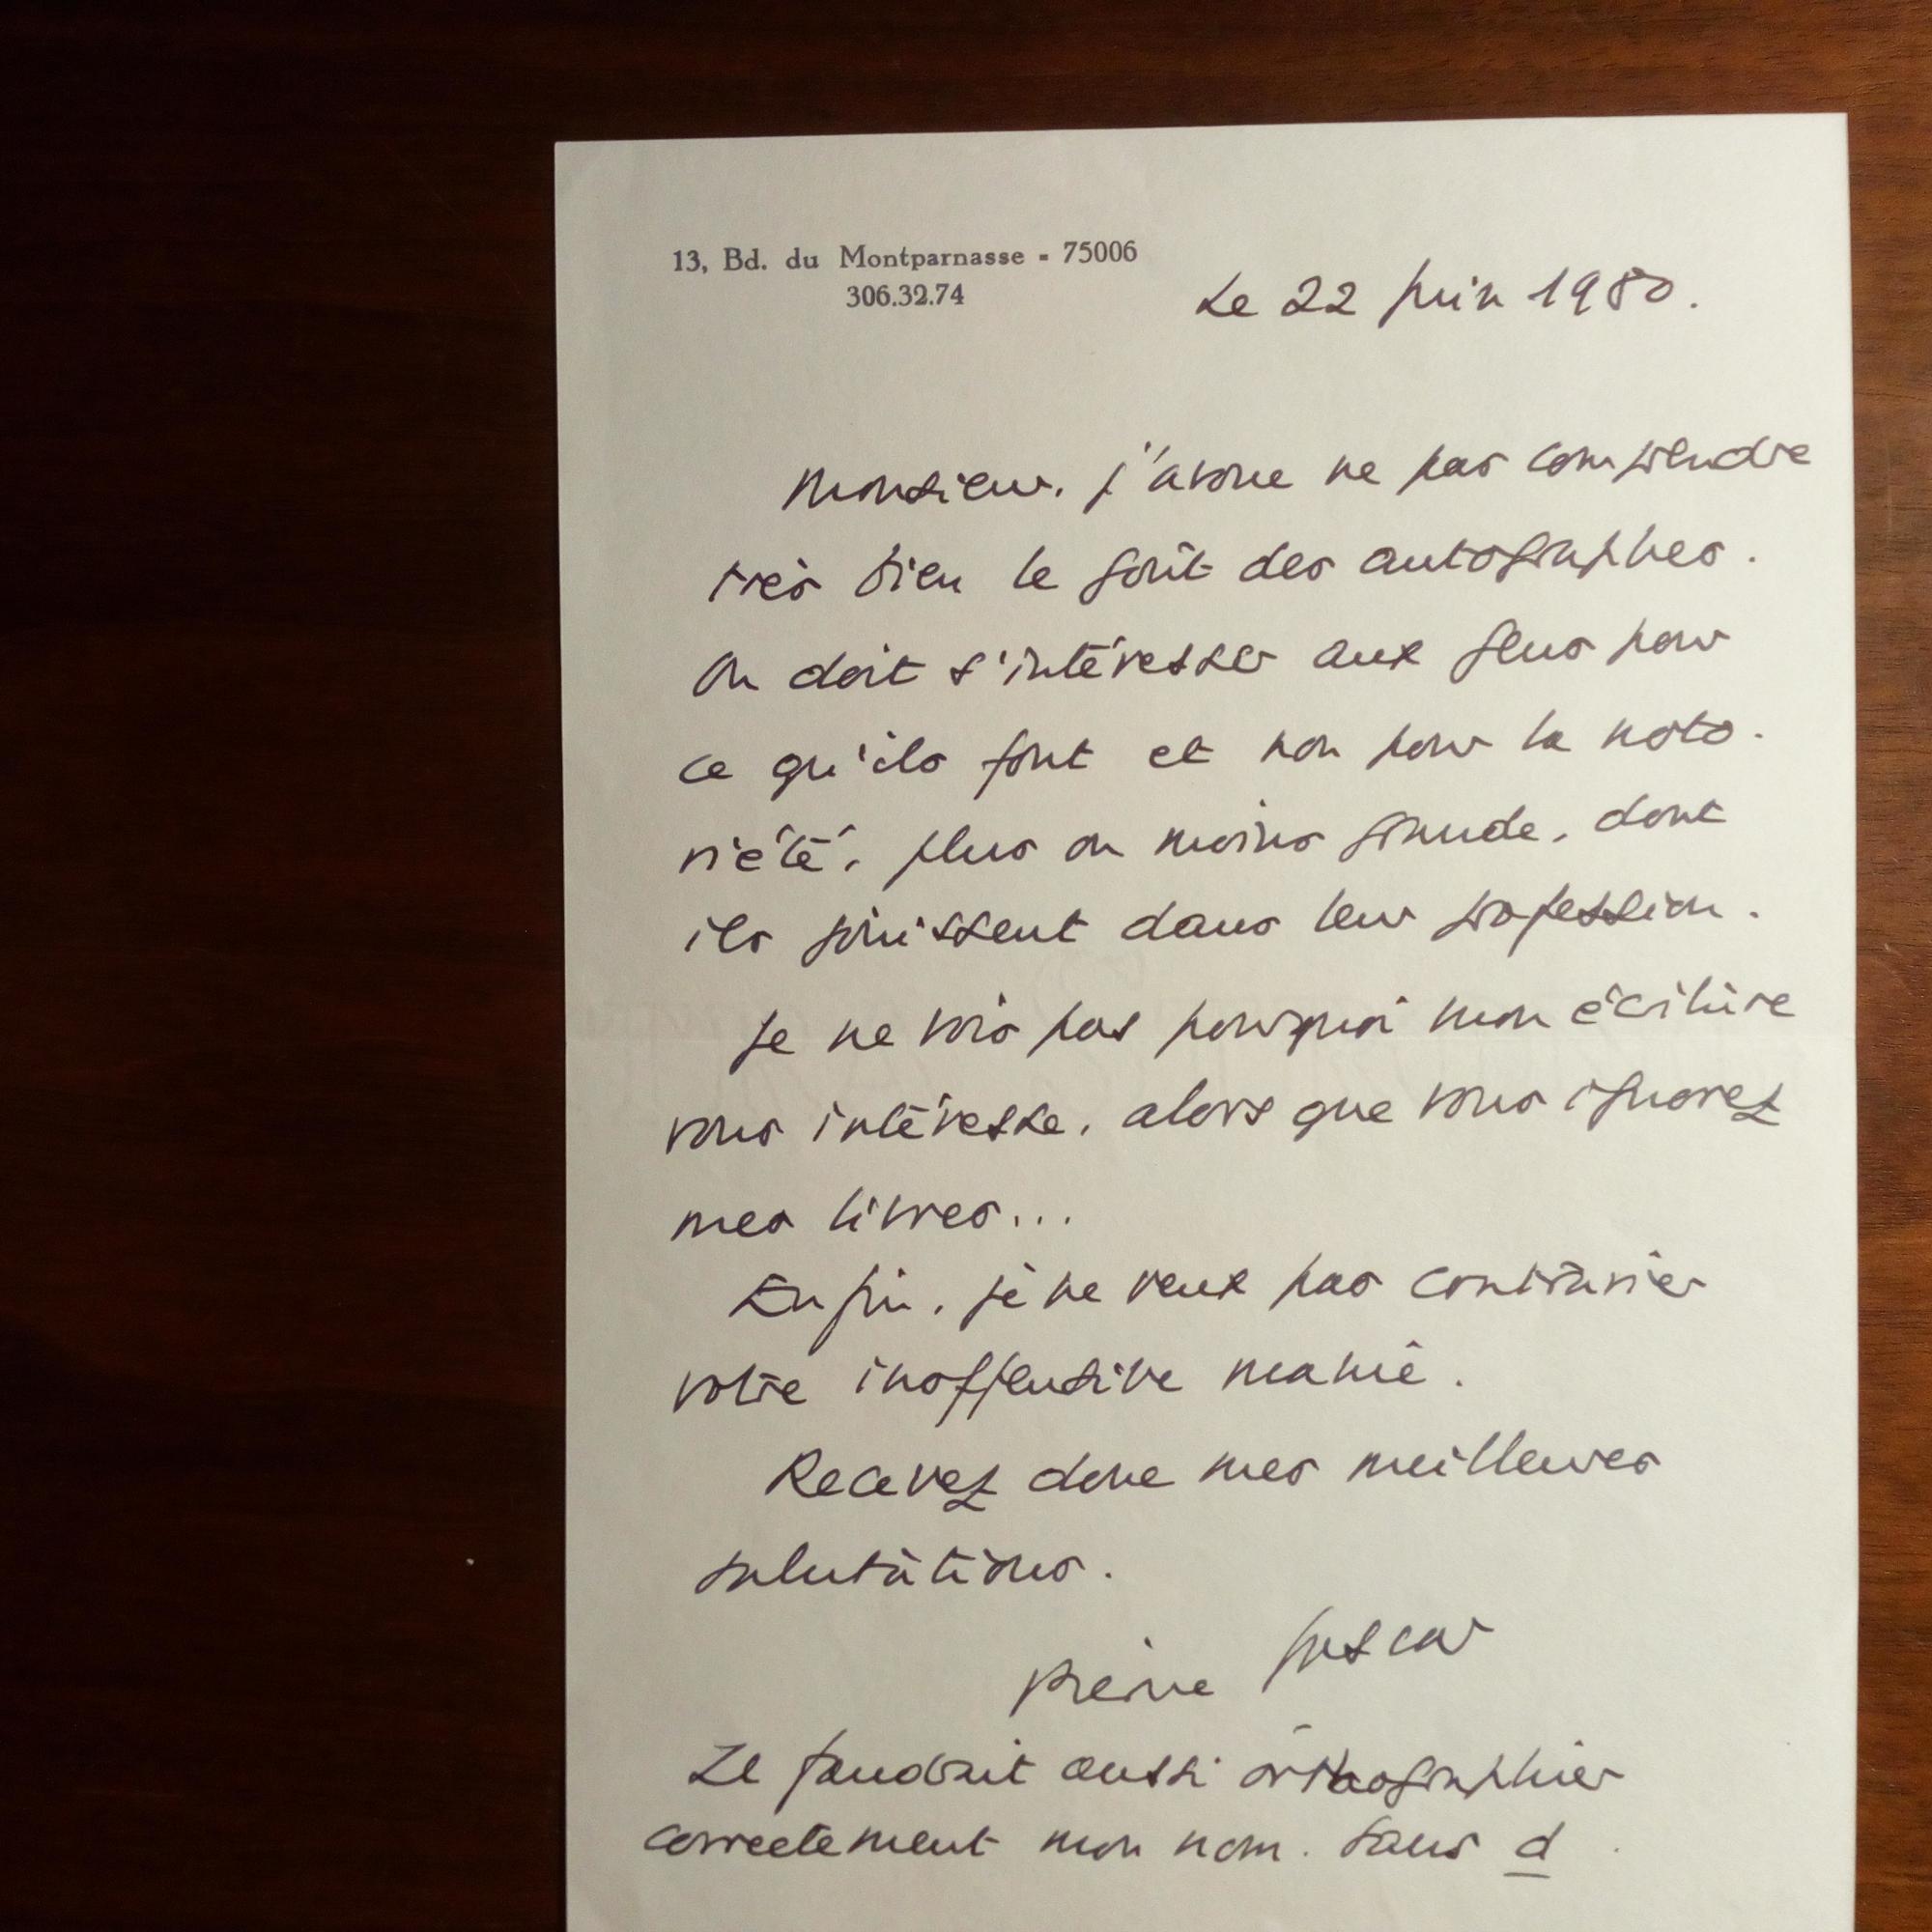 13, Bd. du Montparnasse - 75006
306.32.74
Le 22 juin 1980.
Monsieur, j'avoue ne pas comprendre
très bien le goût des autographes.
On doit s'intéresser aux gens pour
ce qu'ils font et non pour la noto-
riété, plus ou moins grande, dont
ils jouissent dans leur profession.
Je ne vois pas pourquoi mon écriture
vous intéresse, alors que vous ignorez
mes livres...
Enfin, je ne veux pas contrarier
votre inoffensive manie.
Recevez donc mes meilleures
salutations.
Pierre Gascar
Il faudrait aussi orthographier
correctement mon nom. Sans d.